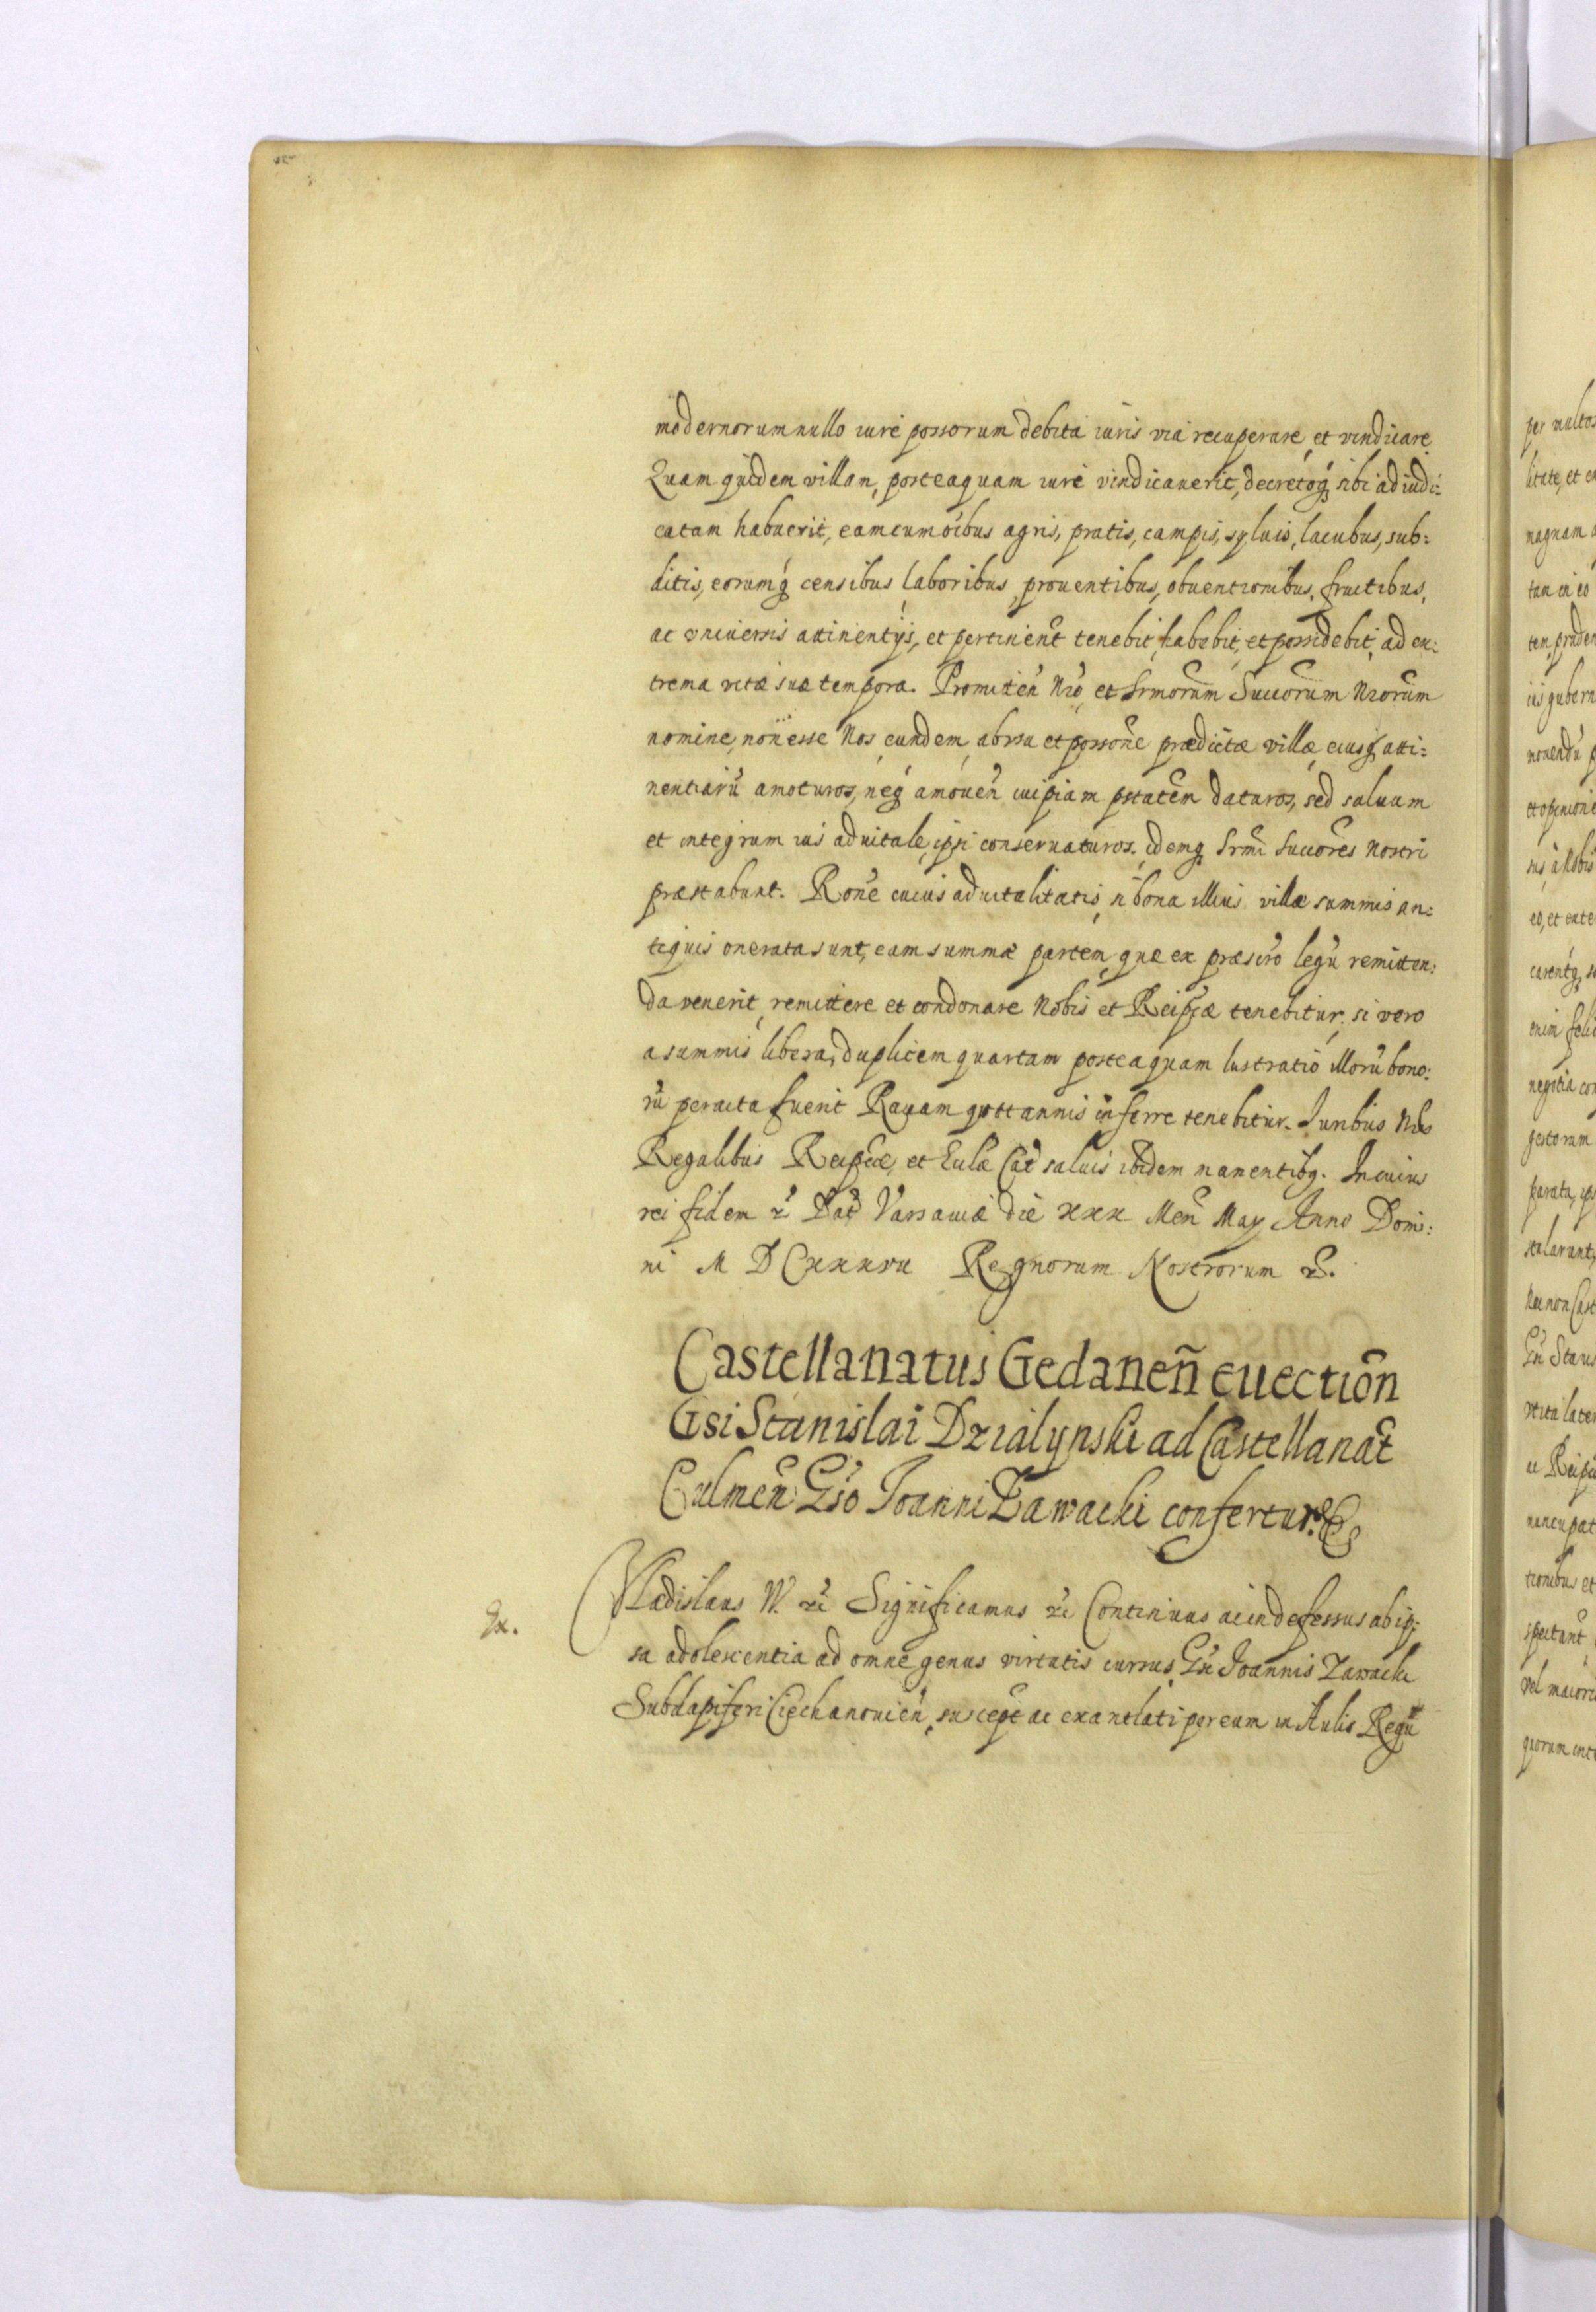 modernorum nullo iure possorum debita iuris via recuperare et vindicare
Quam quidem villam, posteaquam iure vindicauerit, decretoq́ sibi adiudi:
catam habuerit, eam cum oibus agris, pratis, campis, syluis, lacubus, sub:
ditis, eorumq́ censibus laboribus, prouentibus, obuentionibus, fructibus,
ac vniuersis attinentijs, et pertinent̃ tenebit, habebit, et possidebit, ad ex:
trema vitæ suæ tempora. Promitten̄ Nr̃o, et Srmorum Succorum Nrorum
nomine, non esse Nos, eundem, ab vsu et possone prædictæ villæ, eiusq́ atti:
nentiarũ amoturos, neq́ amouen̄ cuipiam ptatem daturos, sed saluam
et integrum ius aduitale, ipsi conseruaturos. idemq́ Srmi Succores Nostri
præstabunt. Rone cuius aduitalitatis, si bona illius villæ summis an:
tiquis onerata sunt, eam summæ partem, quæ ex præscro legũ remitten:
da venerit, remittere et condonare Nobis et Reipcæ tenebitur, si vero
a summis libera, duplicem quartam posteaquam lustratio illorũ bono:
rũ peracta fuerit Rauam quottannis inferre tenebitur. Iuribus Nris
Regalibus Reipcæ, et Eccl̃æ Cat̃ saluis ibidem manentibq. In cuius
rei fidem ꝛc̃ Dat̃ Varsauiæ die xxx Men̄ May Anno Domi:
ni M D Cxxxvii Regnorum Nostrorum ꝛc̃.
Castellanatus Gedanen̄ euection̄
Gsi Stanislai Dzialynski ad Castellanat̃
Culmen̄ Gso Joanni Zawacki confertur.
Ex.
Vladislaus IV. ꝛc̃ Significamus ꝛc̃ Continuus ac indefessus ab ip:
sa adolescentia ad omne genus virtutis cursus, Gsi Joannis Zawacki
Subdapiferi Ciechanouien̄, suscept̃ ac exantlati per eum in Aulis Regũ